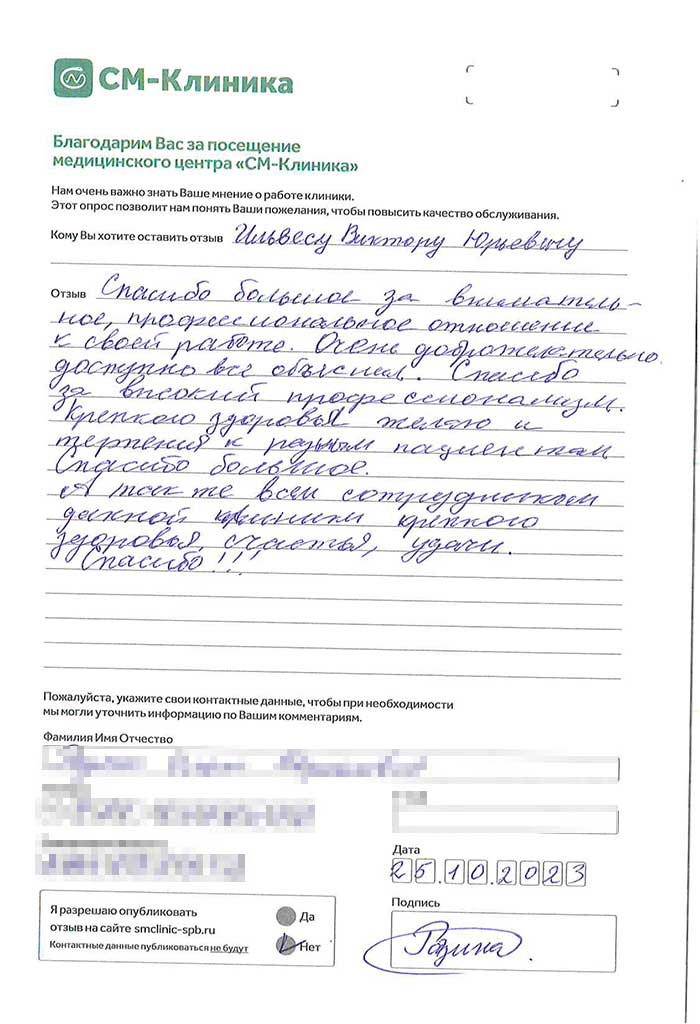 СМ-Клиника
Благодарим Вас за посещение
медицинского центра «СМ-Клиника»
Нам очень важно знать Ваше мнение о работе клиники.
Этот опрос позволит нам понять Ваши пожелания, чтобы повысить качество обслуживания.
Кому Вы хотите оставить отзыв Ильвесу Виктору Юрьевичу
Отзыв Спасибо большое за вниматель-
ное, профессиональное отношение
к своей работе. Очень доброжелательно.
доступно все объяснил. Спасибо
за высокий профессионализм.
Крепкого здоровья желаю и
терпения к разным пациентам
Спасибо большое.
А так же всем сотрудникам
данной клиники крепкого
здоровья, счастья, удачи.
Спасибо!!!
Пожалуйста, укажите свои контактные данные, чтобы при необходимости
мы могли уточнить информацию по Вашим комментариям.
Фамилия Имя Отчество
Дата
25.10.2023
Подпись
Я разрешаю опубликовать
отзыв на сайте smclinic-spb.ru
Контактные данные публиковаться не будут
Да
Нет